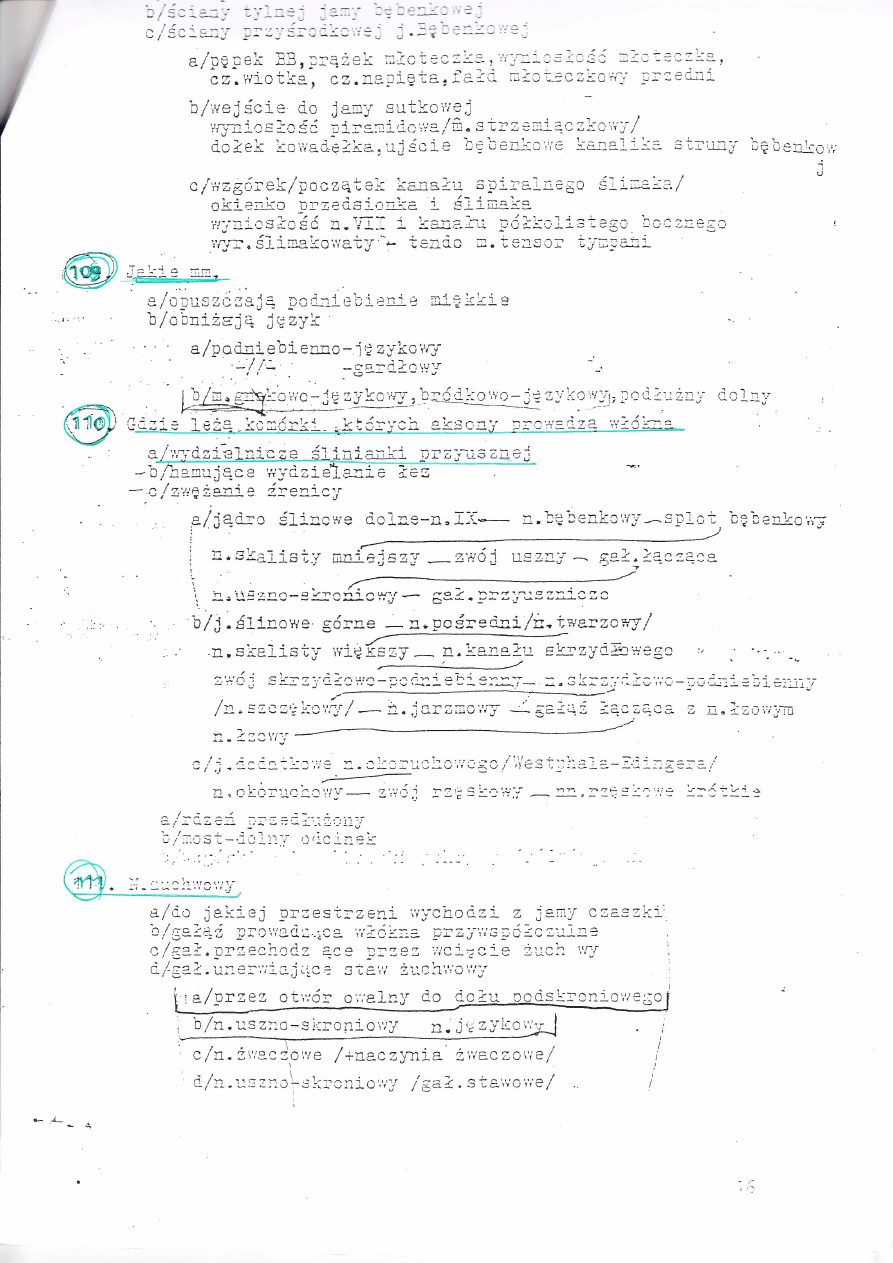 b/ściany tylnej jamy bębenkowej
c/ściany przyśrodkowej j.Bębenkowej
a/pępek BB,prążek młoteczka,wyniosłość młoteczka,
cz.wiotka, cz.napięta,fałd młoteczkowy przedni
b/wejście do jamy sutkowej
wyniosłość piramidowa/m.strzemiączkowy/
dołek kowadełka,ujście bębenkowe kanalika struny bębenkow
j
c/wzgórek/początek kanału spiralnego ślimaka/
okienko przedsionka i ślimaka
wyniosłość n.VII i kanału półkolistego bocznego
wyr.ślimakowaty - tendo m.tensor tympani
109. Jakie mm.
a/opuszczają podniebienie miękkie
b/obniżają język
a/podniebienno-językowy
-//- -gardłowy
b/m.gnykowo-językowy,bródkowo-językowy,podłużny dolny
110. Gdzie leżą komórki ,których aksony prowadzą włókna
a/wydzielnicze ślinianki przyusznej
-b/hamujące wydzielanie łez
-c/zwężanie źrenicy
a/jądro ślinowe dolne-n.IX— n.bębenkowy—splot bębenkowy
n.skalisty mniejszy — zwój uszny — gał.łącząca
n.uszno-skroniowy — gał.przyusznicze
b/j.ślinowe górne — n.pośredni/n.twarzowy/
n.skalisty większy — n.kanału skrzydłowego
zwój skrzydłowo-podniebienny— n.skrzydłowo-podniebienny
/n.szczękowy/— n.jarzmowy — gałąź łącząca z n.łzowym
n.łzowy
c/j.dodatkowe n.okoruchowego/Westphala-Edingera/
n.okoruchowy— zwój rzęskowy — nn.rzęskowe krótkie
a/rdzeń przedłużony
b/most-dolny odcinek
111. N.żuchwowy
a/do jakiej przestrzeni wychodzi z jamy czaszki
b/gałąź prowadząca włókna przywspółczulne
c/gał.przechodz ące przez wcięcie żuch wy
d/gał.unerwiające staw żuchwowy
a/przez otwór owalny do dołu podskroniowego
b/n.uszno-skroniowy n.językowy
c/n.żwaczowe /+naczynia żwaczowe/
d/n.uszno-skroniowy /gał.stawowe/
16